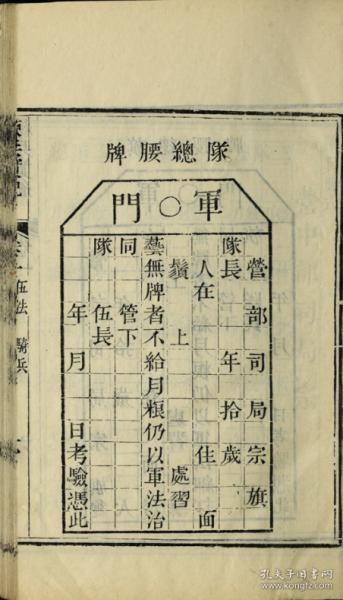 隊總腰牌
軍○門
營部司局宗旗
隊長 年拾歲
人在 住 面
鬚 上 處習
藝無牌者不給月粮仍以軍法治
同 管下
隊 伍長
年 月 日考驗憑此
伍法 騎兵
孔夫子旧书网
www.kongfz.com